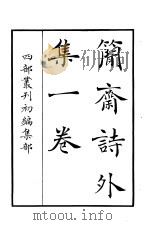 簡齋詩外
集一卷
四部叢刊初編集部
www.mtoou.info